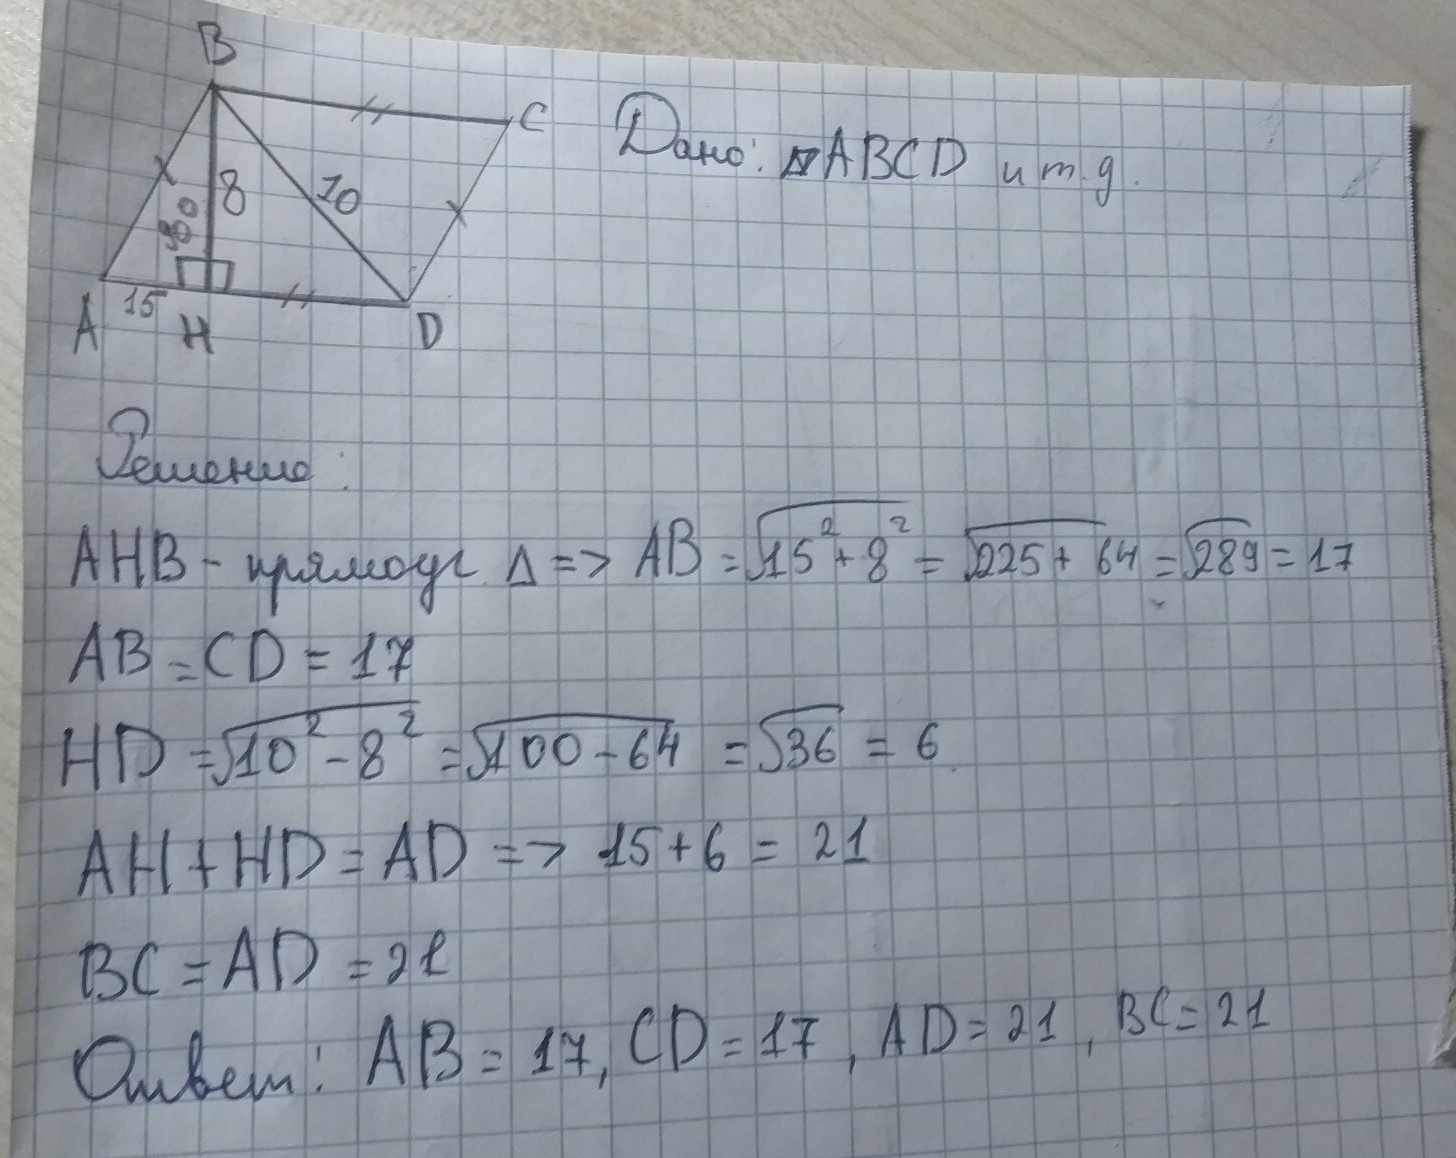 B
C
8
10
90°
A
15
H
D
Дано: ▱ABCD и т.д.
Решение:
AHB - прямоуг. Δ => AB = √15² + 8² = √225 + 64 = √289 = 17
AB = CD = 17
HD = √10² - 8² = √100 - 64 = √36 = 6
AH + HD = AD => 15 + 6 = 21
BC = AD = 21
Ответ: AB = 17, CD = 17, AD = 21, BC = 21